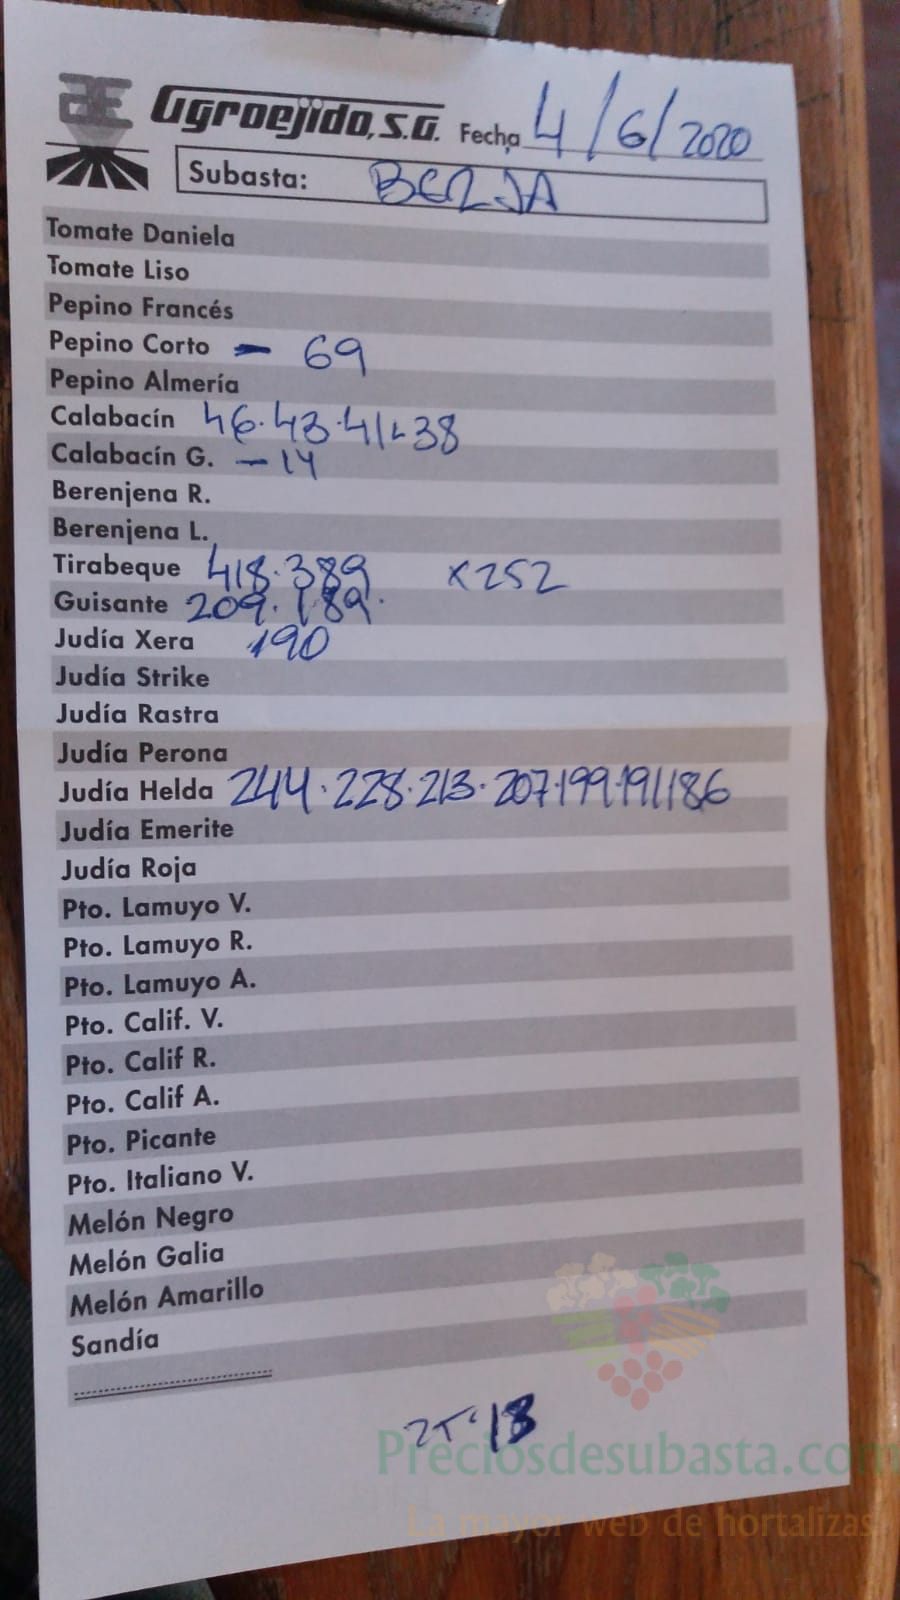 Agroejido, S.A. Fecha 4/6/2020
Subasta: BERJA
Tomate Daniela
Tomate Liso
Pepino Francés
Pepino Corto - 69
Pepino Almería
Calabacín 46.43.41.38
Calabacín G. - 14
Berenjena R.
Berenjena L.
Tirabeque 418.389 x252
Guisante 209.189.
Judía Xera 190
Judía Strike
Judía Rastra
Judía Perona
Judía Helda 244.228.213.207.199.191.186
Judía Emerite
Judía Roja
Pto. Lamuyo V.
Pto. Lamuyo R.
Pto. Lamuyo A.
Pto. Calif. V.
Pto. Calif R.
Pto. Calif A.
Pto. Picante
Pto. Italiano V.
Melón Negro
Melón Galia
Melón Amarillo
Sandía
18
Preciosdesubasta.com
La mayor web de hortalizas